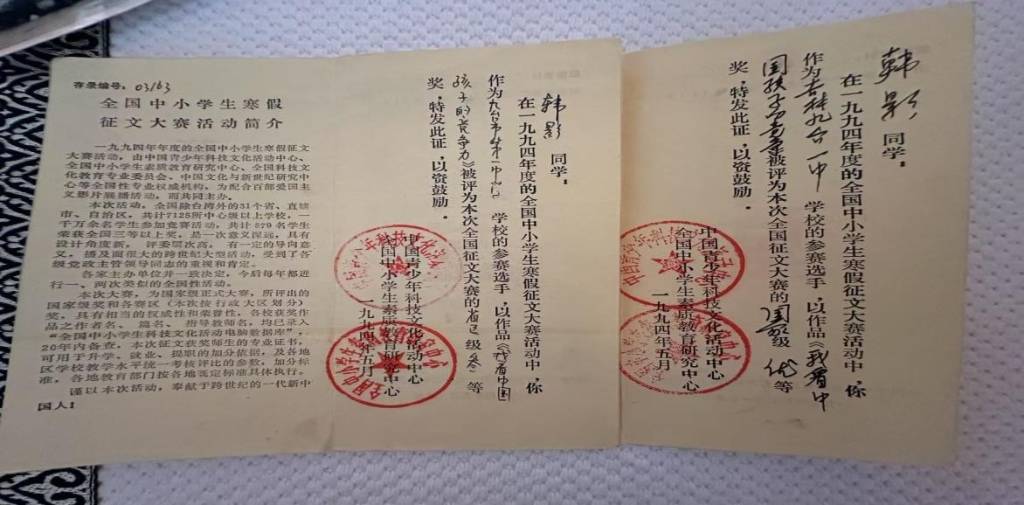 存录编号：03163
全国中小学生寒假
征文大赛活动简介
一九九四年年度的全国中小学生寒假征文
大赛活动，由中国青少年科技文化活动中心、
全国中小学生素质教育研究中心、全国科技文
化教育专业委员会、中国文化与新世纪研究中
心等全国性专业权威机构，为配合百部爱国主
义影片展播活动，而共同主办。
本次活动，全国除台湾外的31个省、直辖
市、自治区，共计7125所中心级以上学校，一
千万余名学生参加竞赛活动，共计879名学生
荣获全国三等以上奖，是一次意义深远，具有
设计角度新，评委层次高，有一定的导向意
义，播及面很大的跨世纪大型活动，受到了各
级党政主管领导同志的重视和肯定。
各家主办单位并一致决定，今后每年都进
行一、两次类似的全国性活动。
本次大赛，为国家级正式大赛，所评出的
国家级奖和各赛区（本次按行政大区划分）
奖，具有相当的权威性和荣誉性，各校获奖作
品之作者名、篇名、指导教师名，均已录入
“全国中小学生科技文化活动电脑数据库”，
20年内备查，本次征文获奖师生的专业证书，
可用于升学、就业、提职的加分依据，及各地
区学校教学水平统一考核评比的参数，加分标
准，各地教育部门按各地既定标准具体执行。
谨以本次活动，奉献于跨世纪的一代新中
国人！
韩影 同学，
在一九九四年度的全国中小学生寒假征文大赛活动中，你
作为九台市第一中 学校的参赛选手，以作品《我看中国
孩子的竞争力》被评为本次全国征文大赛的省区级叁等
奖，特发此证，以资鼓励。
中国青少年科技文化活动中心
全国中小学生素质教育研究中心
一九九四年五月
韩影 同学，
在一九九四年度的全国中小学生寒假征文大赛活动中，你
作为吉林九台一中 学校的参赛选手，以作品《我看中
国孩子的竞争》被评为本次全国征文大赛的国家级优等
奖，特发此证，以资鼓励。
中国青少年科技文化活动中心
全国中小学生素质教育研究中心
一九九四年五月